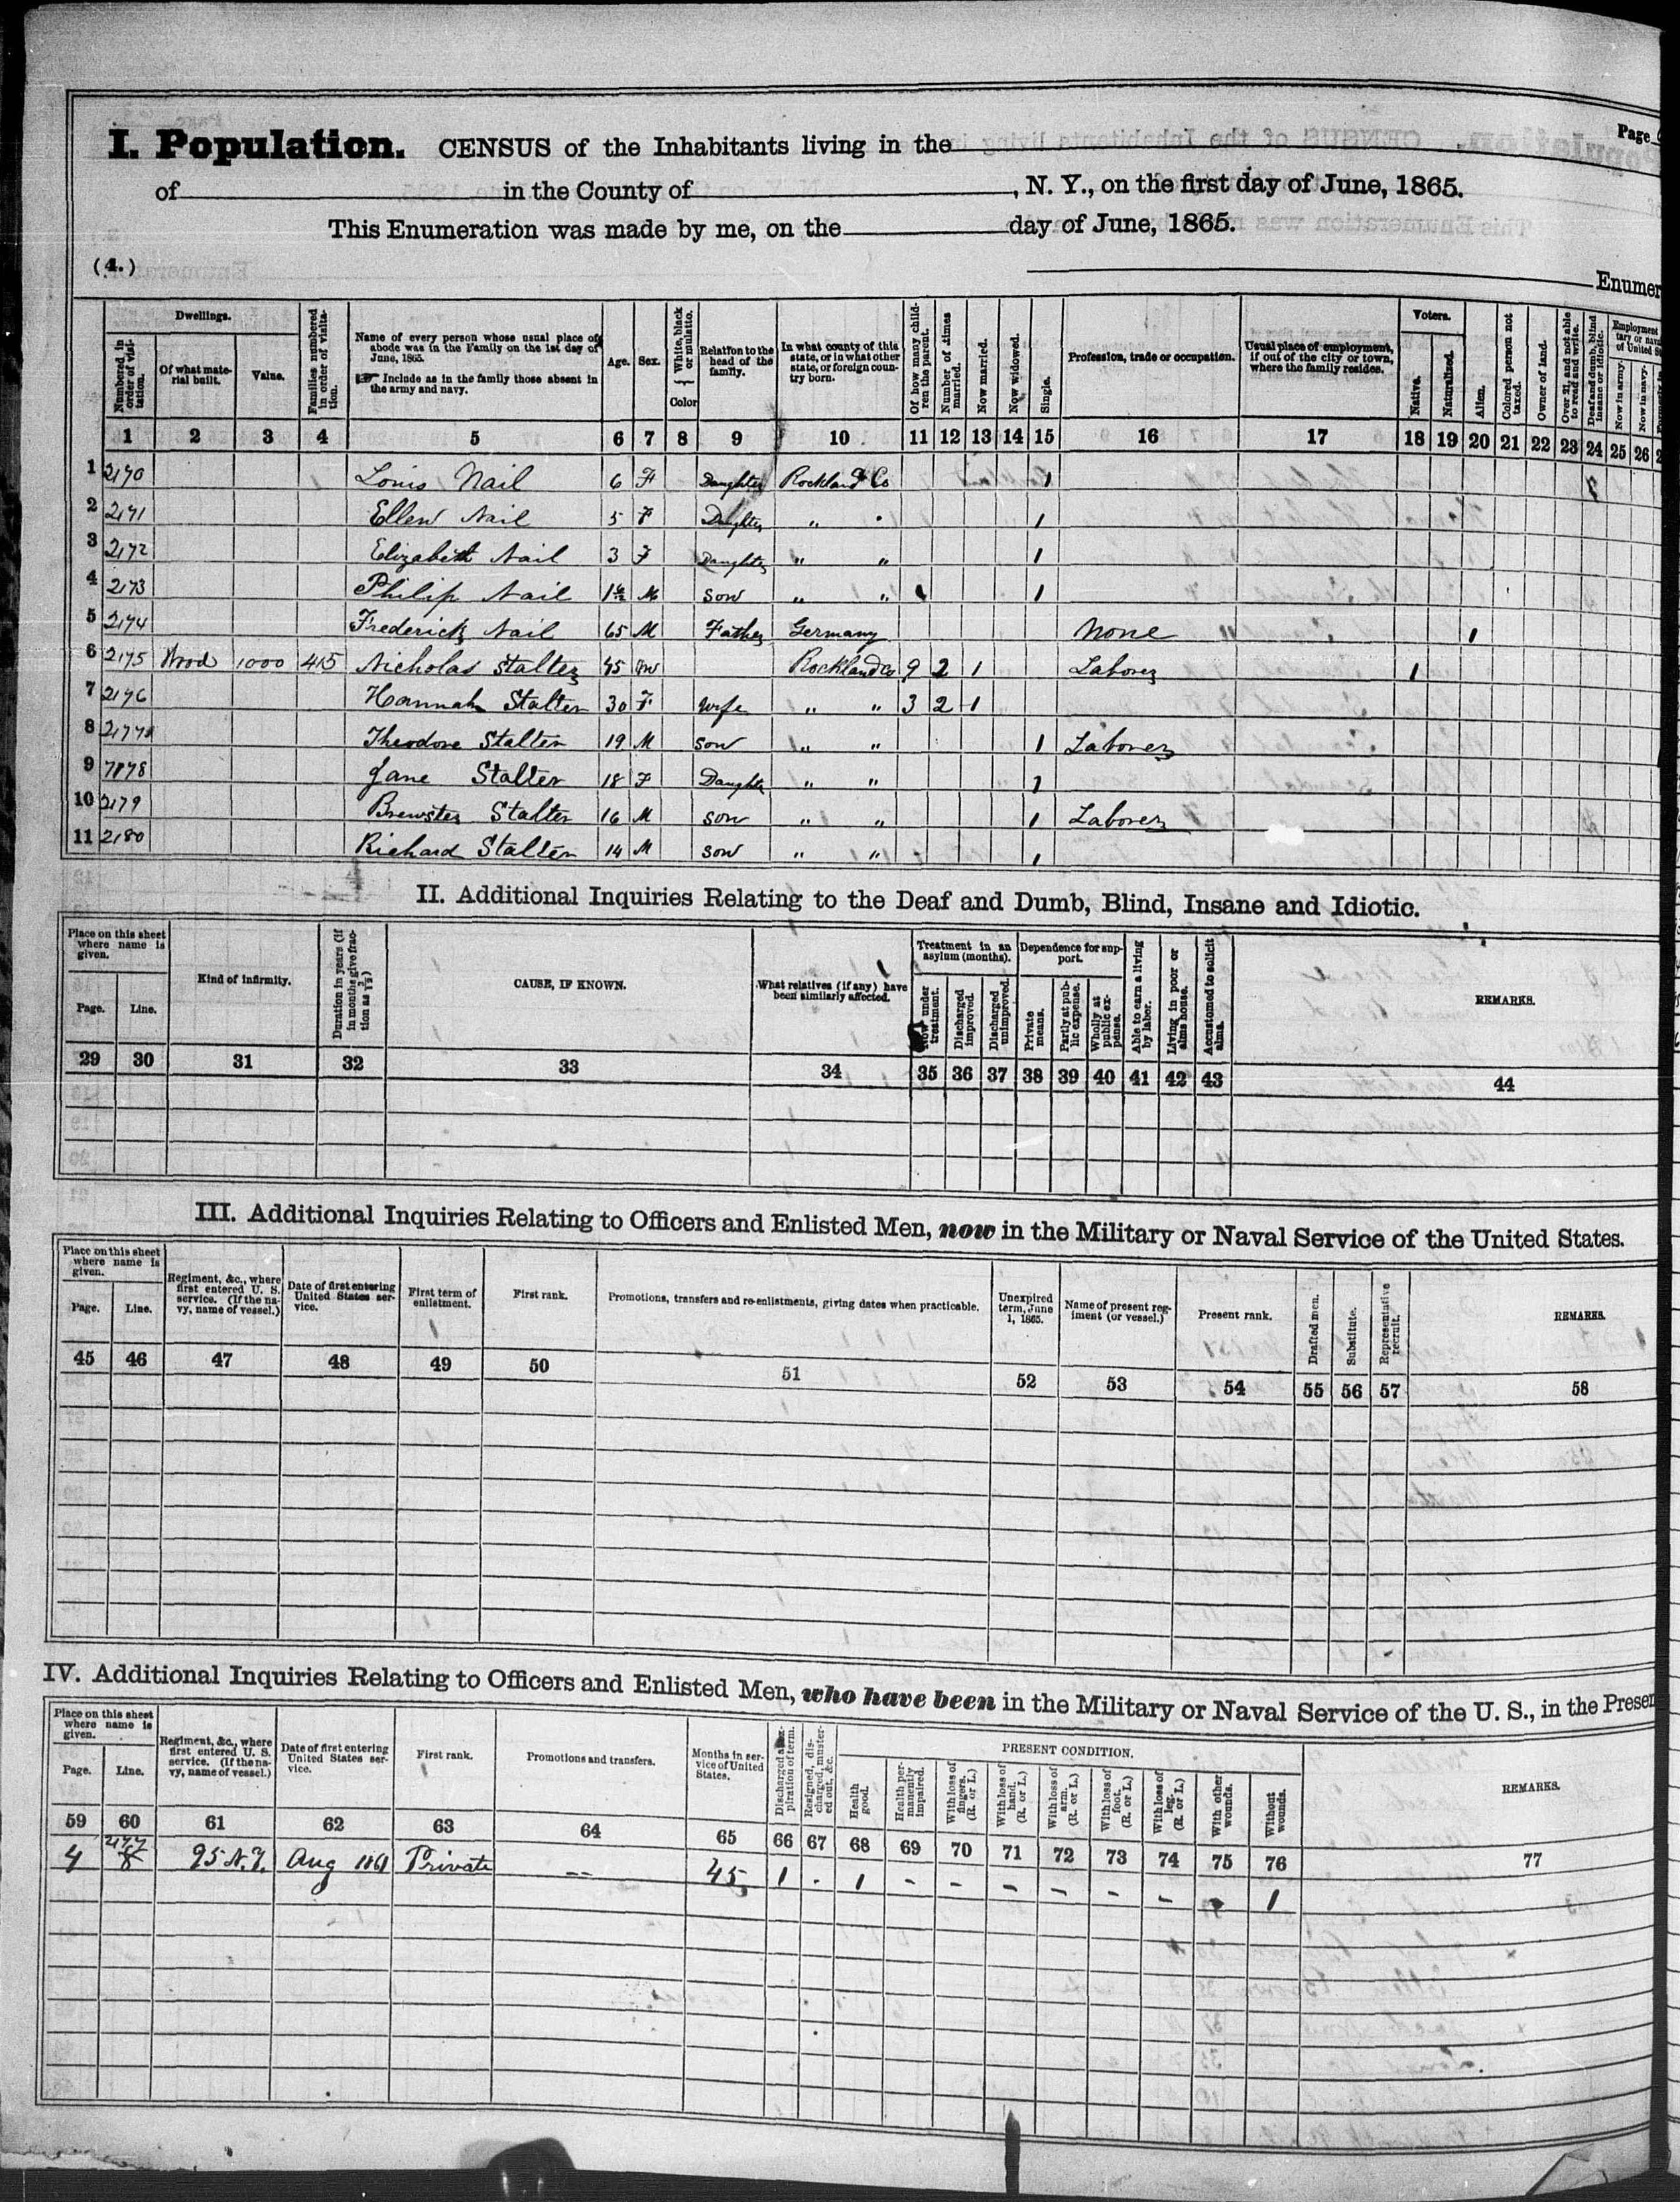 Page
I. Population. CENSUS of the Inhabitants living in the
of in the County of , N. Y., on the first day of June, 1865.
This Enumeration was made by me, on the day of June, 1865.
(4.)
Enumer
Numbered in order of visitation.
Dwellings.
Of what material built.
Value.
Families numbered in order of visitation.
Name of every person whose usual place of abode was in the Family on the 1st day of June, 1865.
☞ Include as in the family those absent in the army and navy.
Age.
Sex.
White, black or mulatto.
Color
Relation to the head of the family.
In what county of this state, or in what other state, or foreign country born.
Of how many children the parent.
Number of times married.
Now married.
Now widowed.
Single.
Profession, trade or occupation.
Usual place of employment, if out of the city or town, where the family resides.
Voters.
Native.
Naturalized.
Alien.
Colored person not taxed.
Owner of land.
Over 21 and not able to read and write.
Deaf and dumb, blind insane or idiotic.
Employment
Now in army.
Now in navy.
1 2 3 4 5 6 7 8 9 10 11 12 13 14 15 16 17 18 19 20 21 22 23 24 25 26
1 2170 Louis Nail 6 F Daughter Rockland Co 1
2 2171 Ellen Nail 5 F Daughter " 1
3 2172 Elizabeth Nail 3 F Daughter " " 1
4 2173 Philip Nail M son " " 1
5 2174 Frederick Nail 65 M Father Germany None 1
6 2175 Wood 1000 415 Nicholas Stalter 45 M Rockland Co 9 2 1 Laborer 1
7 2176 Hannah Stalter 30 F wife " " 3 2 1
8 2177 Theodore Stalter 19 M son " " 1 Laborer
9 7178 Jane Stalter 18 F Daughter " " 1
10 2179 Brewster Stalter 16 M son " " 1 Laborer
11 2180 Richard Stalter 14 M son " " 1
II. Additional Inquiries Relating to the Deaf and Dumb, Blind, Insane and Idiotic.
Place on this sheet where name is given.
Page.
Line.
Kind of infirmity.
Duration in years (if in months give fraction as 3/12)
CAUSE, IF KNOWN.
What relatives (if any) have been similarly affected.
Treatment in an asylum (months).
Now under treatment.
Discharged improved.
Discharged unimproved.
Dependence for support.
Private means.
Partly at public expense.
Wholly at public expense.
Able to earn a living by labor.
Living in poor or alms house.
Accustomed to solicit alms.
REMARKS.
29 30 31 32 33 34 35 36 37 38 39 40 41 42 43 44
III. Additional Inquiries Relating to Officers and Enlisted Men, now in the Military or Naval Service of the United States.
Place on this sheet where name is given.
Page.
Line.
Regiment, &c., where first entered U. S. service. (If the navy, name of vessel.)
Date of first entering United States service.
First term of enlistment.
First rank.
Promotions, transfers and re-enlistments, giving dates when practicable.
Unexpired term, June 1, 1865.
Name of present regiment (or vessel.)
Present rank.
Drafted men.
Substitute.
Representative recruit.
REMARKS.
45 46 47 48 49 50 51 52 53 54 55 56 57 58
IV. Additional Inquiries Relating to Officers and Enlisted Men, who have been in the Military or Naval Service of the U. S., in the Presen
Place on this sheet where name is given.
Page.
Line.
Regiment, &c., where first entered U. S. service. (If the navy, name of vessel.)
Date of first entering United States service.
First rank.
Promotions and transfers.
Months in service of United States.
Discharged at expiration of term.
Resigned, discharged, mustered out, &c.
PRESENT CONDITION.
Health good.
Health permanently impaired.
With loss of fingers. (R. or L.)
With loss of hand. (R. or L.)
With loss of arm. (R. or L.)
With loss of foot. (R. or L.)
With loss of leg. (R. or L.)
With other wounds.
Without wounds.
REMARKS.
59 60 61 62 63 64 65 66 67 68 69 70 71 72 73 74 75 76 77
4 2177 8 95 N.Y. Aug 1861 Private -- 45 1 - 1 - - - - - - - 1